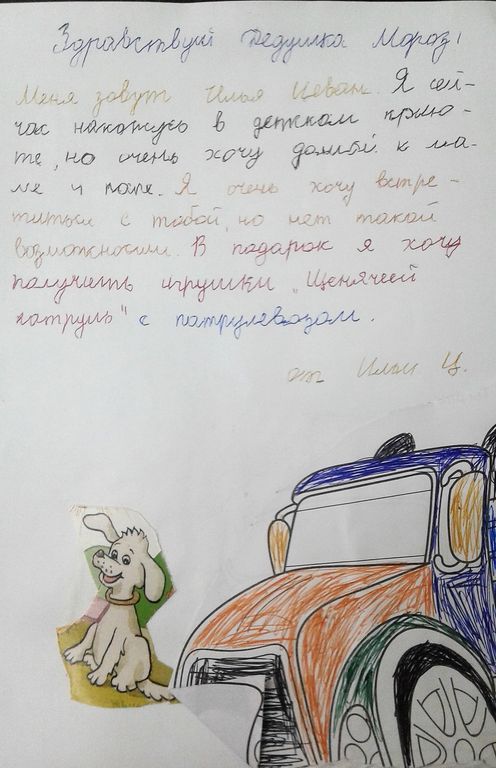 Здравствуй Дедушка Мороз!
Меня зовут Илья Цеван. Я сей-
час нахожусь в детском прию-
те, но очень хочу домой к ма-
ме и папе. Я очень хочу встре-
титься с тобой, но нет такой
возможности. В подарок я хочу
получить игрушки „Щенячий
патруль" с патрулевозом.
от Ильи Ц.